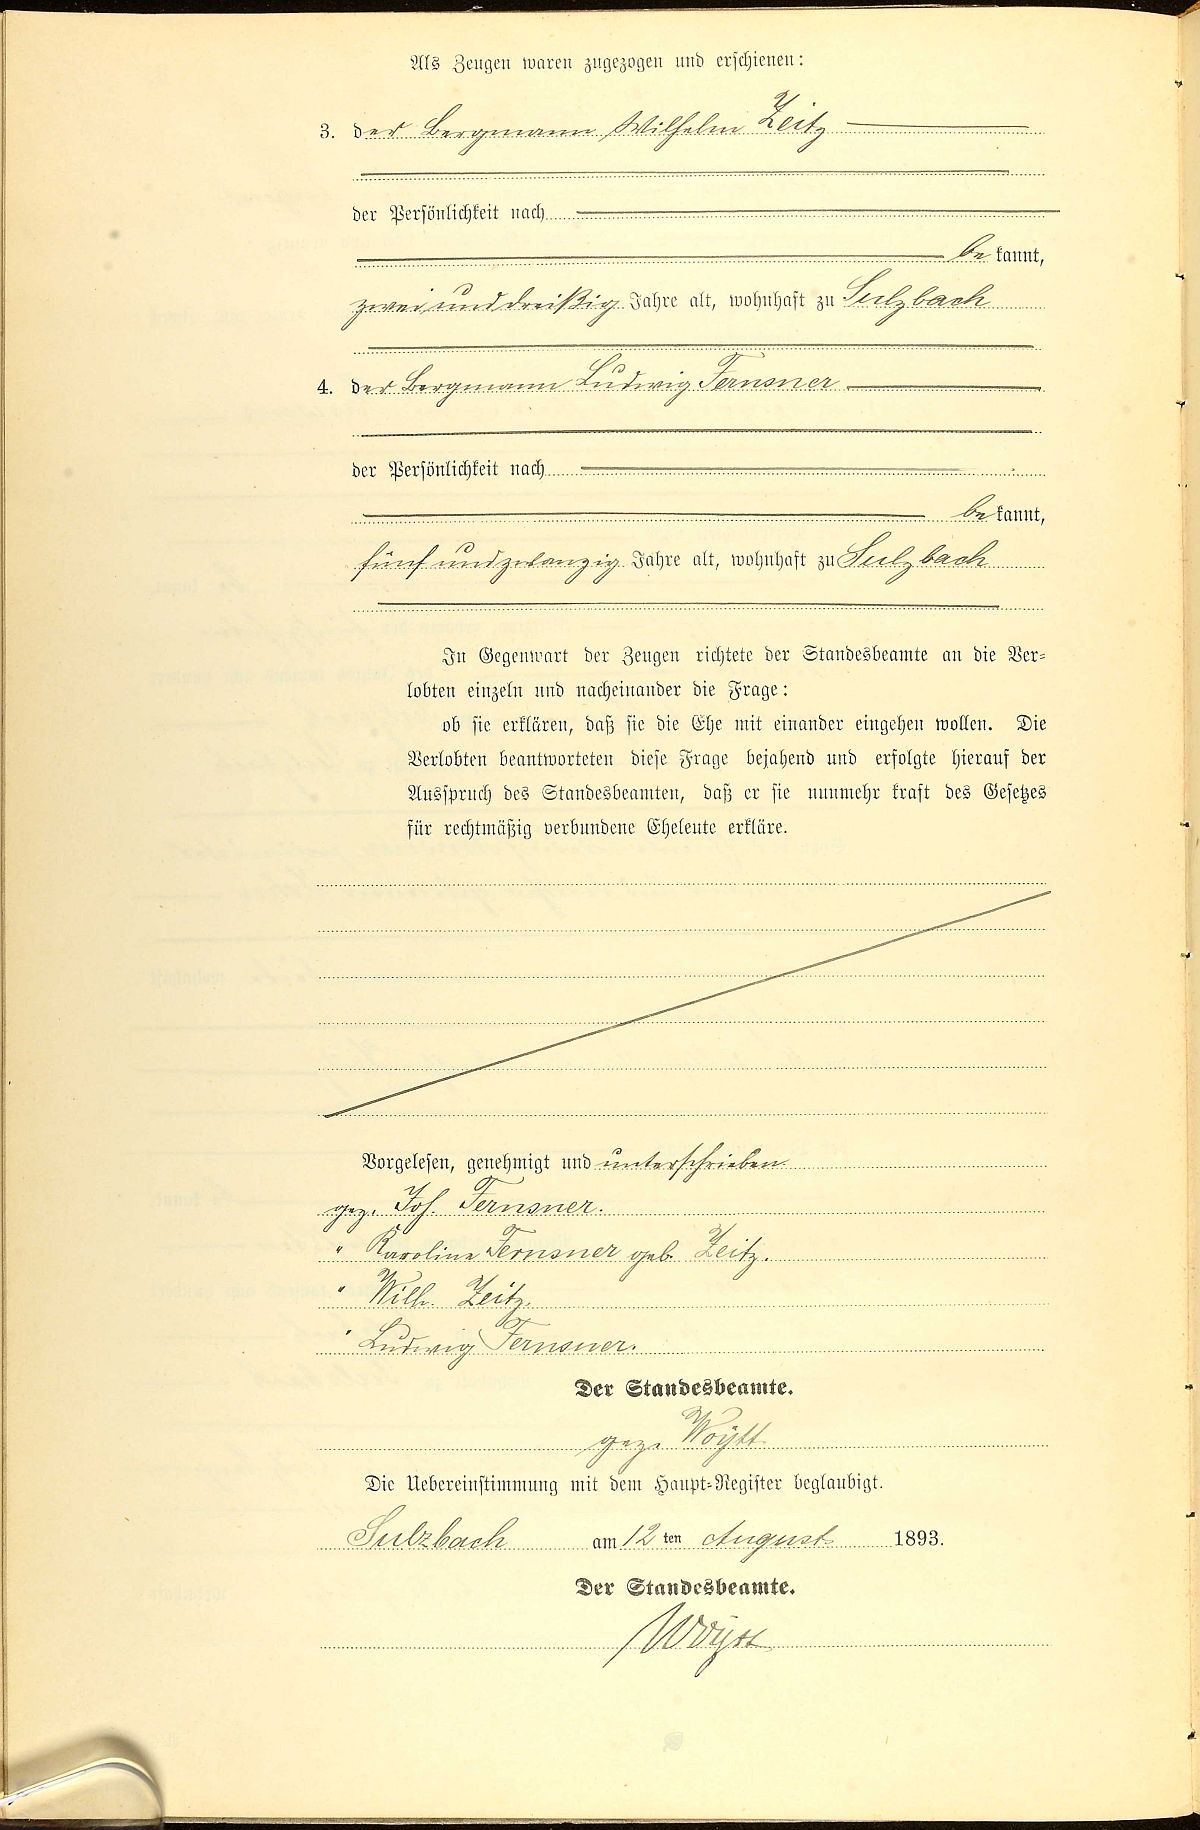 Als Zeugen waren zugezogen und erschienen:
3. der Bergmann Wilhelm Zeitz
der Persönlichkeit nach
be kannt,
zwei und dreißig Jahre alt, wohnhaft zu Sulzbach
4. der Bergmann Ludwig Fernsner
der Persönlichkeit nach
be kannt,
fünf und zwanzig Jahre alt, wohnhaft zu Sulzbach
In Gegenwart der Zeugen richtete der Standesbeamte an die Ver-
lobten einzeln und nacheinander die Frage:
ob sie erklären, daß sie die Ehe mit einander eingehen wollen. Die
Verlobten beantworteten diese Frage bejahend und erfolgte hierauf der
Ausspruch des Standesbeamten, daß er sie nunmehr kraft des Gesetzes
für rechtmäßig verbundene Eheleute erkläre.
Vorgelesen, genehmigt und unterschrieben
gez. Joh. Fernsner.
" Karolina Fernsner geb. Zeitz.
" Wilh. Zeitz.
" Ludwig Fernsner.
Der Standesbeamte.
gez. Woytt
Die Uebereinstimmung mit dem Haupt-Register beglaubigt.
Sulzbach am 12 ten August 1893.
Der Standesbeamte.
Woytt